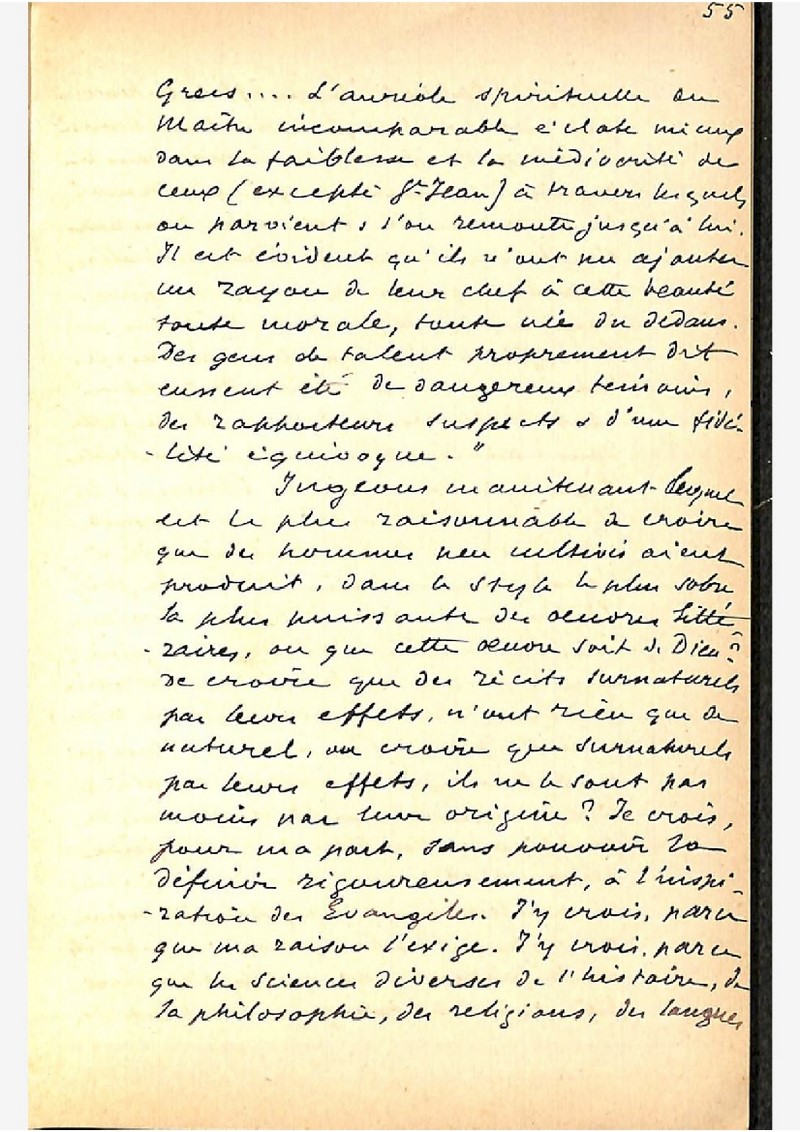 55
Grecs.... L'auréole spirituelle du
Maître incomparable éclate mieux
dans la faiblesse et la médiocrité de
ceux (excepté St Jean) à travers lesquels
on parvient & l'on remonte jusqu'à lui.
Il est évident qu'ils n'ont pu ajouter
un rayon de leur chef à cette beauté
toute morale, toute née du dedans.
Des gens de talent proprement dit
eussent été de dangereux témoins,
des rapporteurs suspects & d'une fidé-
-lité équivoque."
Jugeons maintenant lequel
est le plus raisonnable de croire
que des hommes peu cultivés aient
produit, dans le style le plus sobre
la plus puissante des œuvres litté-
-raires, ou que cette œuvre soit de Dieu?
De croire que des récits surnaturels
par leurs effets, n'ont rien que de
naturel, ou croire que surnaturels
par leurs effets, ils ne le sont pas
moins par leur origine? Je crois,
pour ma part, sans pouvoir la
définir rigoureusement, à l'inspi-
-ration des Evangiles. J'y crois, parce
que ma raison l'exige. J'y crois, parce
que les sciences diverses de l'histoire, de
la philosophie, des religions, des langues